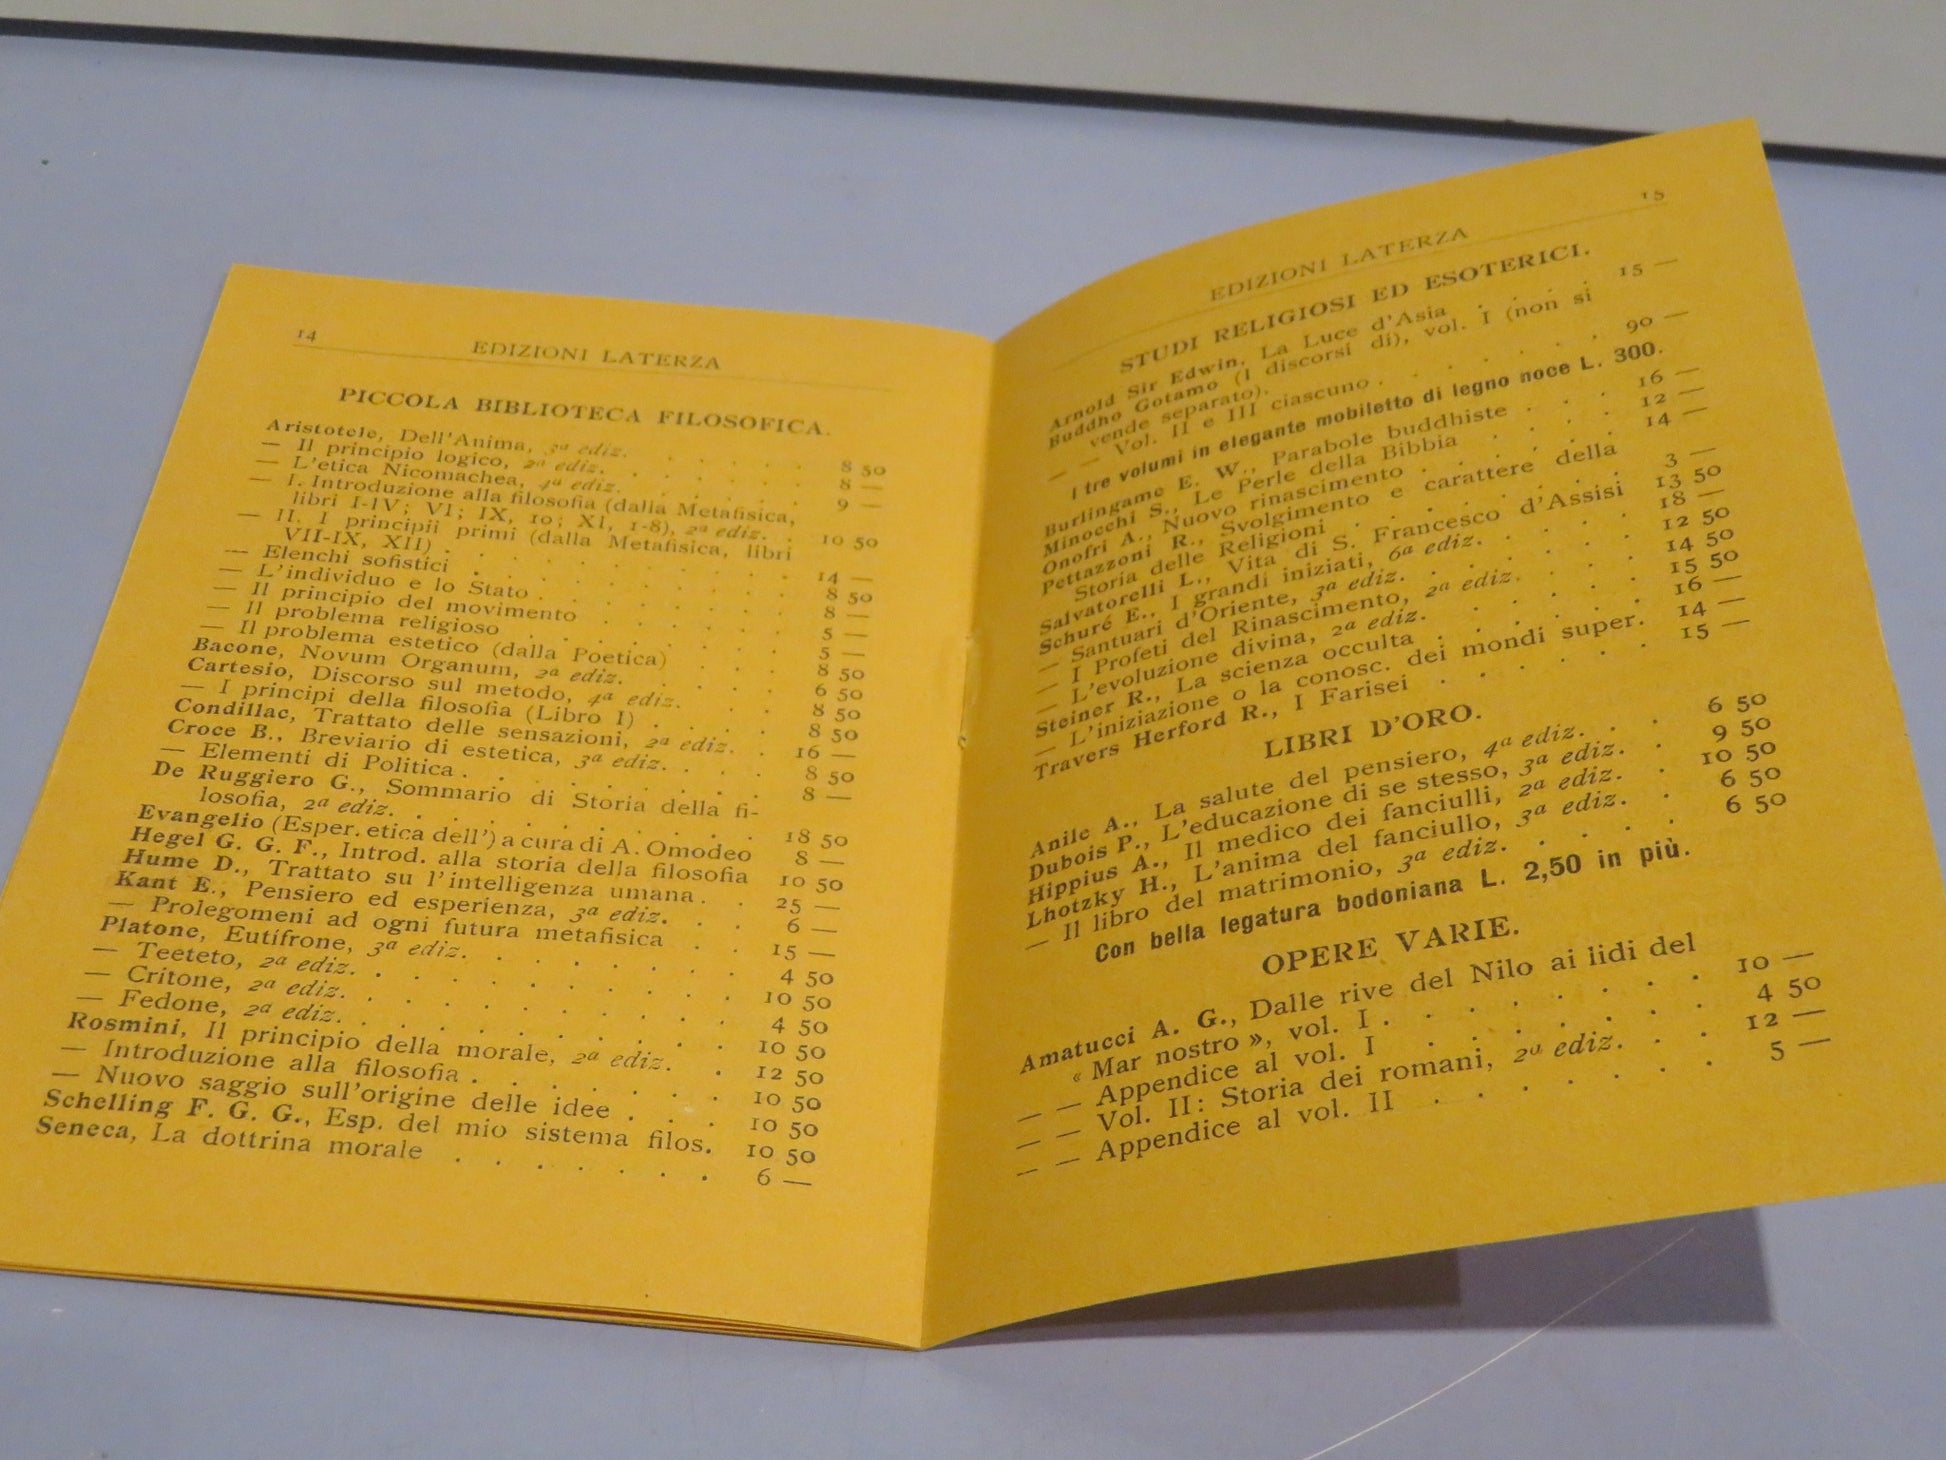 14
EDIZIONI LATERZA
PICCOLA BIBLIOTECA FILOSOFICA.
Aristotele, Dell'Anima, 3ª ediz. . . . . . 8 50
— Il principio logico, 2ª ediz. . . . . . 8 —
— L'etica Nicomachea, 4ª ediz. . . . . . 9 —
— I. Introduzione alla filosofia (dalla Metafisica,
libri I-IV; VI; IX, 10; XI, 1-8), 2ª ediz. . 10 50
— II. I principii primi (dalla Metafisica, libri
VII-IX, XII) . . . . . . . . . 14 —
— Elenchi sofistici . . . . . . . . 8 50
— L'individuo e lo Stato . . . . . . . 8 —
— Il principio del movimento . . . . . 5 —
— Il problema religioso . . . . . . . 5 —
— Il problema estetico (dalla Poetica) . . . 8 50
Bacone, Novum Organum, 2ª ediz. . . . . 6 50
Cartesio, Discorso sul metodo, 4ª ediz. . . . 8 50
— I principi della filosofia (Libro I) . . . . 8 50
Condillac, Trattato delle sensazioni, 2ª ediz. . 16 —
Croce B., Breviario di estetica, 3ª ediz. . . . 8 50
— Elementi di Politica . . . . . . . 8 —
De Ruggiero G., Sommario di Storia della fi-
losofia, 2ª ediz. . . . . . . . . 18 50
Evangelio (Esper. etica dell') a cura di A. Omodeo 8 —
Hegel G. G. F., Introd. alla storia della filosofia 10 50
Hume D., Trattato su l'intelligenza umana . . 25 —
Kant E., Pensiero ed esperienza, 3ª ediz. . . 6 —
— Prolegomeni ad ogni futura metafisica . . 15 —
Platone, Eutifrone, 3ª ediz. . . . . . . 4 50
— Teeteto, 2ª ediz. . . . . . . . . 10 50
— Critone, 2ª ediz. . . . . . . . . 4 50
— Fedone, 2ª ediz. . . . . . . . . 10 50
Rosmini, Il principio della morale, 2ª ediz. . 12 50
— Introduzione alla filosofia . . . . . . 10 50
— Nuovo saggio sull'origine delle idee . . . 10 50
Schelling F. G. G., Esp. del mio sistema filos. 10 50
Seneca, La dottrina morale . . . . . . . 6 —
15
EDIZIONI LATERZA
STUDI RELIGIOSI ED ESOTERICI.
Arnold Sir Edwin. La Luce d'Asia . . . . 15 —
Buddho Gotamo (I discorsi di), vol. I (non si
vende separato).
— — Vol. II e III ciascuno . . . . . . 90 —
I tre volumi in elegante mobiletto di legno noce L. 300.
Burlingame E. W., Parabole buddhiste . . . 16 —
Minocchi S., Le Perle della Bibbia . . . . 12 —
Onofri A., Nuovo rinascimento . . . . . 14 —
Pettazzoni R., Svolgimento e carattere della
Storia delle Religioni . . . . . . . 3 —
Salvatorelli L., Vita di S. Francesco d'Assisi 13 50
Schuré E., I grandi iniziati, 6ª ediz. . . . . 18 —
— Santuari d'Oriente, 3ª ediz. . . . . . 12 50
— I Profeti del Rinascimento, 2ª ediz. . . . 14 50
— L'evoluzione divina, 2ª ediz. . . . . . 15 50
Steiner R., La scienza occulta . . . . . . 16 —
— L'iniziazione o la conosc. dei mondi super. 14 —
Travers Herford R., I Farisei . . . . . . 15 —
LIBRI D'ORO.
Anile A., La salute del pensiero, 4ª ediz. . . . 6 50
Dubois P., L'educazione di se stesso, 3ª ediz. . 9 50
Hippius A., Il medico dei fanciulli, 2ª ediz. . 10 50
Lhotzky H., L'anima del fanciullo, 3ª ediz. . 6 50
— Il libro del matrimonio, 3ª ediz. . . . . 6 50
Con bella legatura bodoniana L. 2,50 in più.
OPERE VARIE.
Amatucci A. G., Dalle rive del Nilo ai lidi del
« Mar nostro », vol. I . . . . . . . 10 —
— — Appendice al vol. I . . . . . . 4 50
— — Vol. II: Storia dei romani, 2ª ediz. . . 12 —
— — Appendice al vol. II . . . . . . 5 —